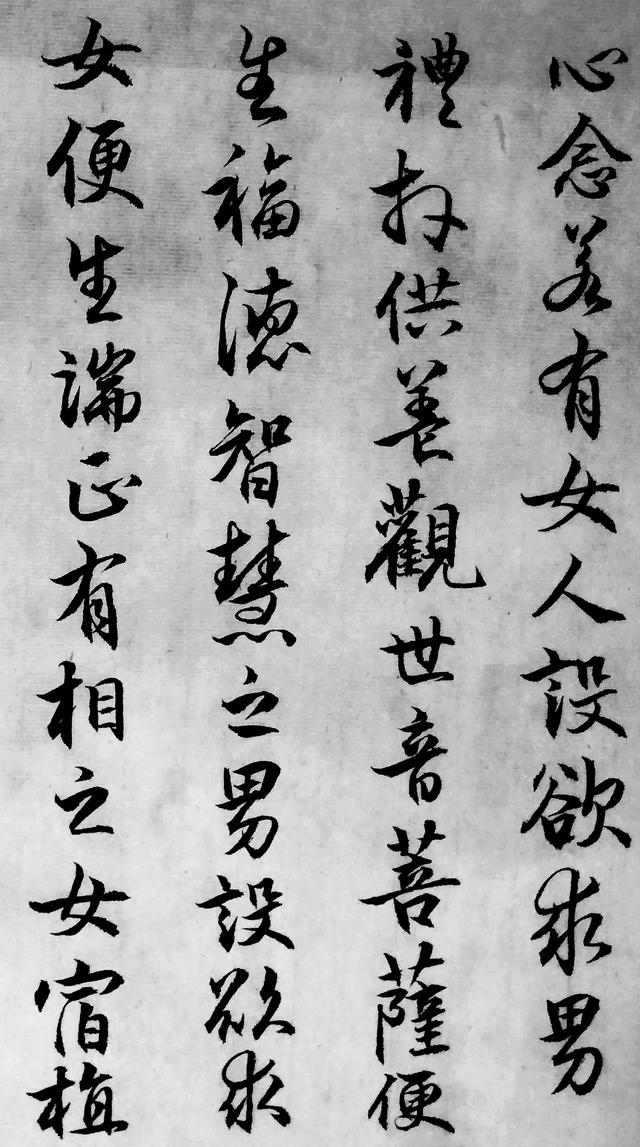 心念若有女人設欲求男
禮拜供養觀世音菩薩便
生福德智慧之男設欲求
女便生端正有相之女宿植